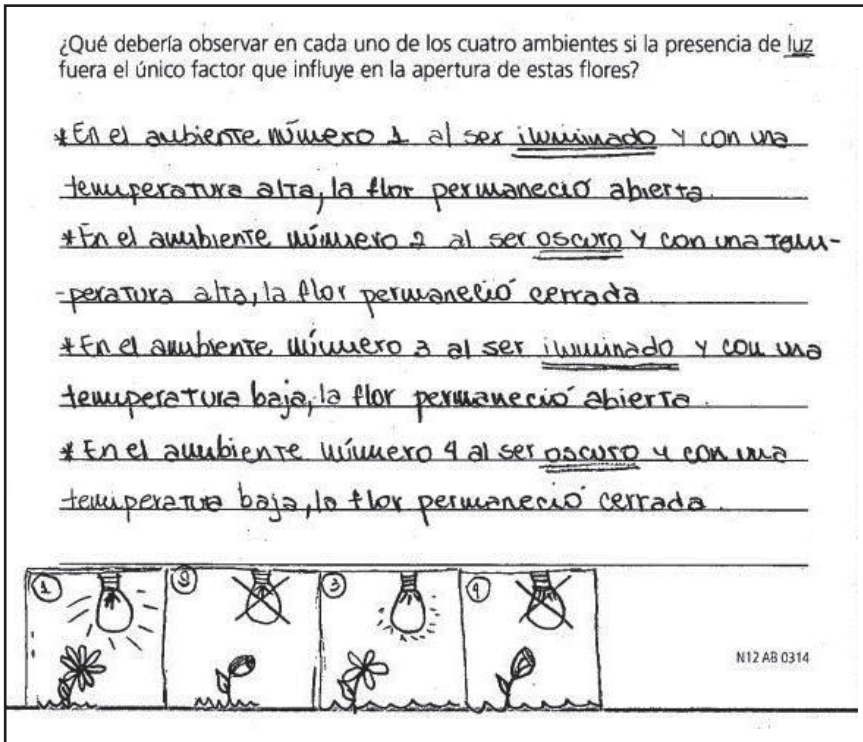 ¿Qué debería observar en cada uno de los cuatro ambientes si la presencia de luz
fuera el único factor que influye en la apertura de estas flores?
*En el ambiente número 1 al ser iluminado y con una
temperatura alta, la flor permaneció abierta.
*En el ambiente número 2 al ser oscuro y con una tem-
-peratura alta, la flor permaneció cerrada
*En el ambiente número 3 al ser iluminado y con una
temperatura baja, la flor permaneció abierta.
*En el ambiente número 4 al ser oscuro y con una
temperatura baja, la flor permaneció cerrada.
1 2 3 4
N12 AB 0314